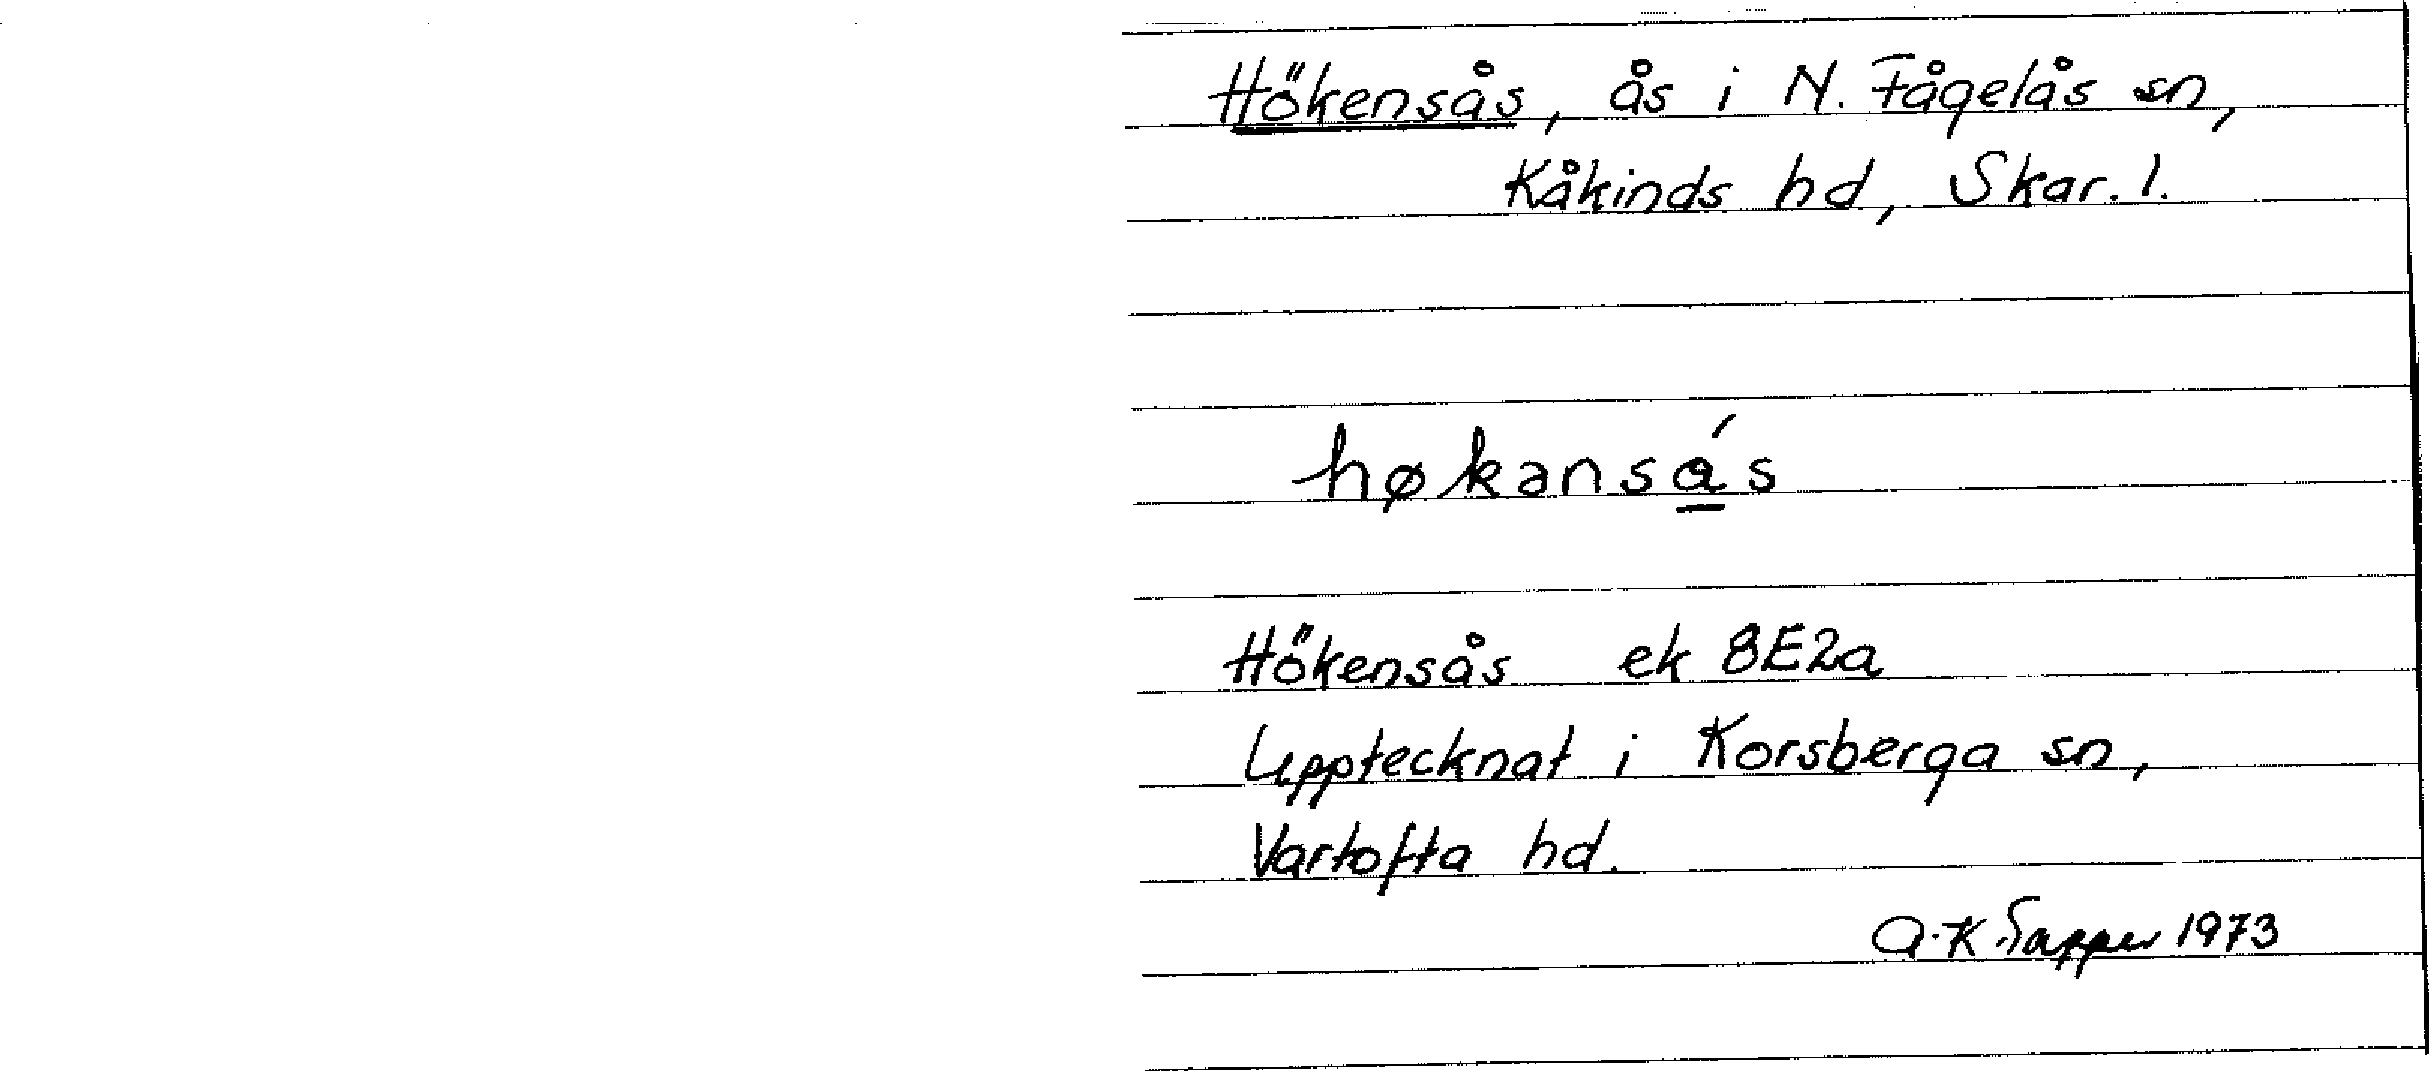 Hökensås, ås i N. Fågelås sn,
Kåkinds hd, Skar. l.
høkansá̲s
Hökensås ek 8E2a
Upptecknat i Korsberga sn,
Vartofta hd.
A-K Tapper 1973